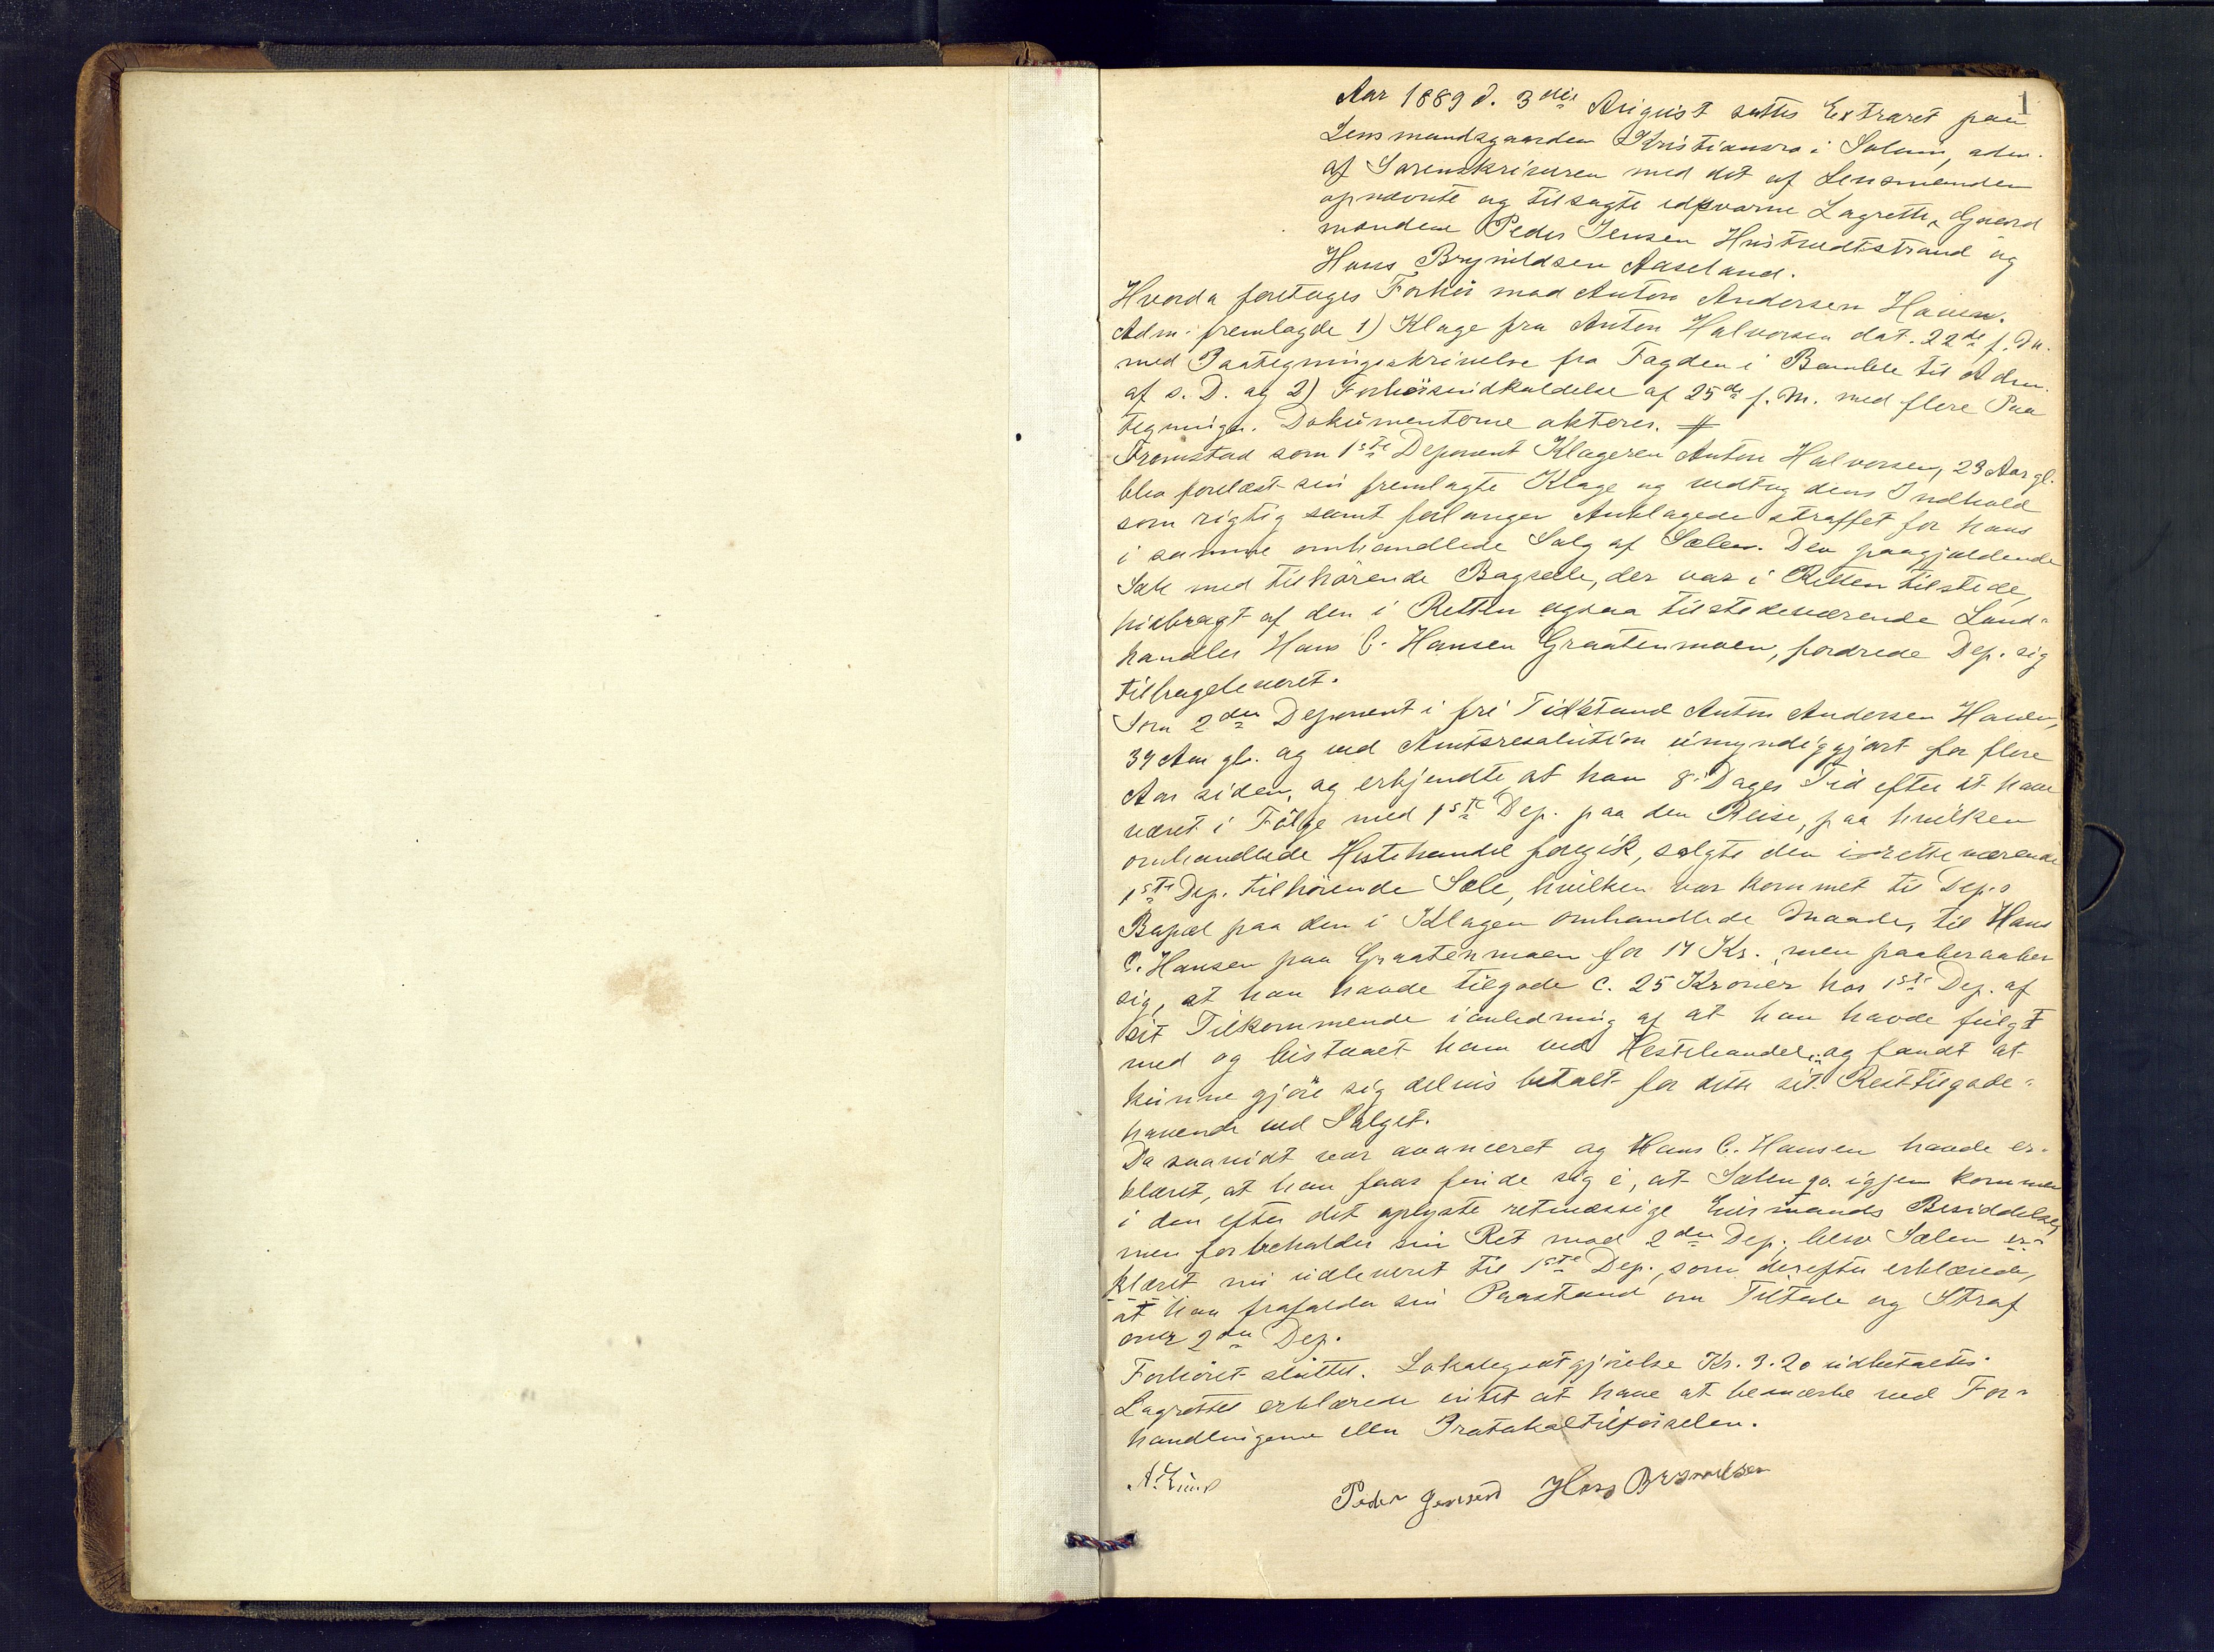 1
Aar 1889 d. 3die August sattes Extraret paa
Lensmandsgaarden Kristiansro i Solum, adm.
af Sorenskriveren med det af Lensmanden
opnævnte og tilsagte edsvorne Lagrette, Gaard
mændene Peder Jensen Hustvedtstrand og
Hans Brynildsen Aaseland.
Hvorda foretoges Forhør mod Anton Andersen Haven.
Adm. fremlagde 1) Klage fra Anton Halvorsen dat. 22de f. M.
med Paategningsskrivelse fra Fogden i Bamble til Adm.
af s. D. og 2) Forhørsindkaldelse af 25de f. M. med flere Paa
tegninger. Dokumenterne akteres.
Fremstod som 1ste Deponent Klageren Anton Halvorsen, 23 Aar gl.
blev forelæst sin fremlagte Klage og vedtog dens Indhold
som rigtig samt forlanger Anklagede straffet for hans
i samme omhandlede Salg af Sælen. Den paagjældende
Sæle med tilhørende Bagsele, der var i Retten tilstede,
hidbragt af den i Retten ogsaa tilstedeværende Land-
handler Hans C. Hansen Graatenmoen, fordrede Dep. sig
tilbageleveret.
Som 2den Deponent i fri Tilstand Anton Andersen Haven,
39 Aar gl. og ved Amtsresolution umyndiggjort for flere
Aar siden, og erkjendte, at han 8 Dages Tid efter at have
været i Følge med 1ste Dep. paa den Reise, paa hvilken
omhandlede Hestehandel foregik, solgte den iretteværende
1ste Dep. tilhørende Sæle, hvilken var kommet til Dep.s
Bopæl paa den i Klagen omhandlede Maade, til Hans
C. Hansen paa Graatenmoen for 14 Kr., men paaberaaber
sig, at han havde tilgode c. 25 Kroner hos 1ste Dep. af
sit Tilkommende i anledning af at han havde fulgt
med og bistaaet ham ved Hestehandelen og fandt at
kunne gjøre sig delvis betalt for dette sit Resttilgode-
havende ved Salget.
Da saavidt var avanceret og Hans C. Hansen havde er-
klæret, at han faar finde sig i, at Sælen qv. igjen kommer
i den efter det oplyste retmæssige Eiermands Besiddelse,
men forbeholder sin Ret mod 2den Dep., blev Sælen er-
klæret nu udleveret til 1ste Dep., som derefter erklærede,
at han frafalder sin Paastand om Tiltale og Straf
over 2den Dep.
Forhøret sluttet. Lokalegodtgjørelse Kr. 3.20 udbetaltes.
Lagrettet erklærede intet at have at bemærke ved For-
handlingerne eller Protokoltilførselen.
Peder Jensen Hans Brynildsen